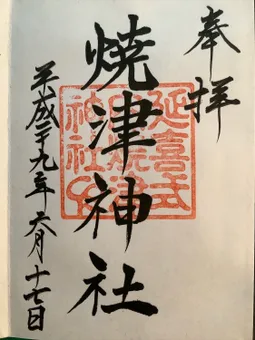 奉拝
焼津神社
平成二十九年六月十七日
延喜式
神社